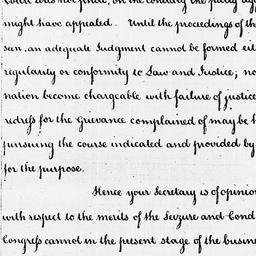 Court does not final, on the contrary the party ag
might have appealed. Until the proceedings of th
san, an adequate Judgment cannot be formed eit
regularity or conformity to Law and Justice; no
nation become chargeable with failure of justice
redress for the Grievance complained of may be h
pursuing the course indicated and provided by
for the purpose.
Hence your Secretary is of opinion
with respect to the merits of the Seizure and Cond
Congress cannot in the present stage of the busine